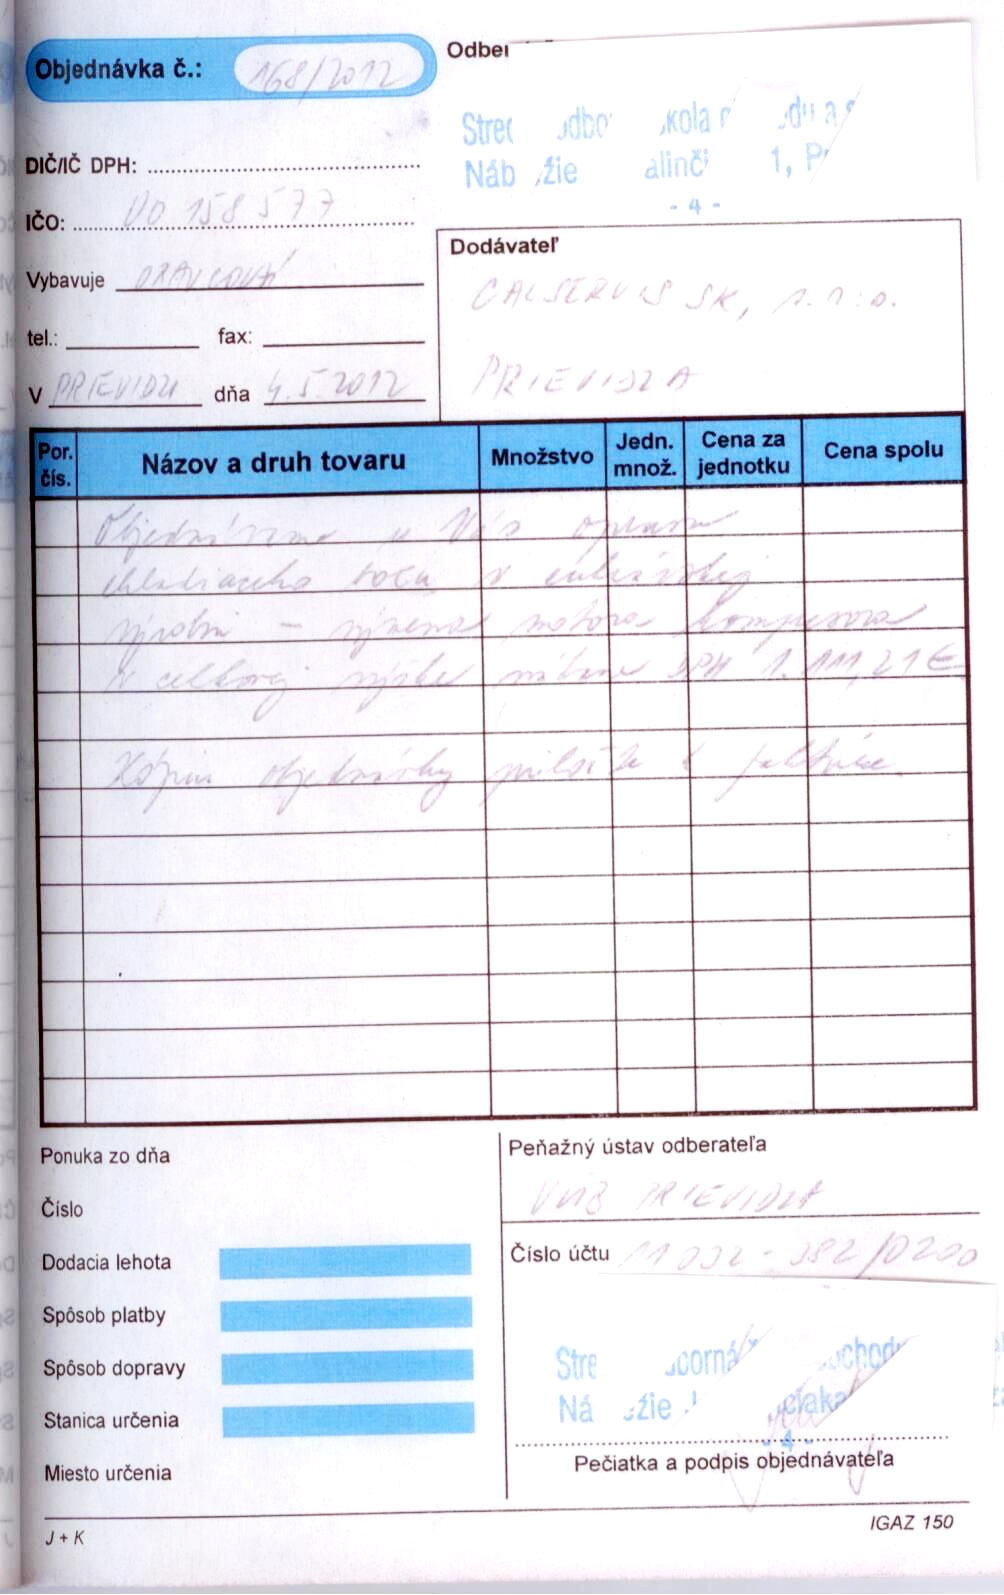 Objednávka č.: 168/2012
Odber
DIČ/IČ DPH:
IČO: 00 158 577
Vybavuje ORAVCOVÁ
tel.: fax:
V PRIEVIDZI dňa 4.5.2012
Nábžie alinči 1, P
- 4 -
Dodávateľ
CALSERVIS SK, s.r.o.
PRIEVIDZA
Por. čís. Názov a druh tovaru Množstvo Jedn. množ. Cena za jednotku Cena spolu
Objednávame u Vás opravu
chladiaceho boxu v cukrárskej
výrobni - výmena motora kompresora
v celkovej výške vrátane DPH 1.111,21 €
Kópiu objednávky priložte k faktúre.
Ponuka zo dňa
Číslo
Dodacia lehota
Spôsob platby
Spôsob dopravy
Stanica určenia
Miesto určenia
Peňažný ústav odberateľa
VÚB PRIEVIDZA
Číslo účtu 11032-382/0200
- 4 -
Pečiatka a podpis objednávateľa
J + K
IGAZ 150